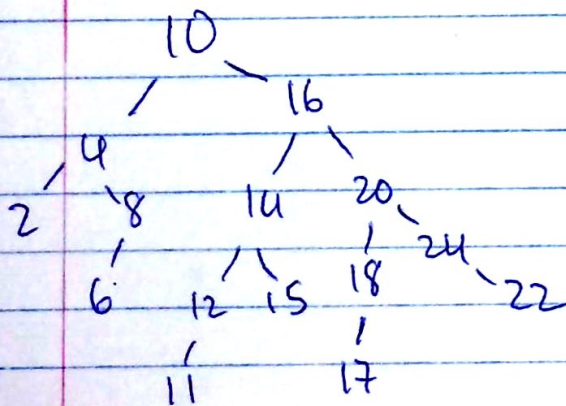 10
16
4
2 8 14 20
24
6 12 15 18 22
11 17